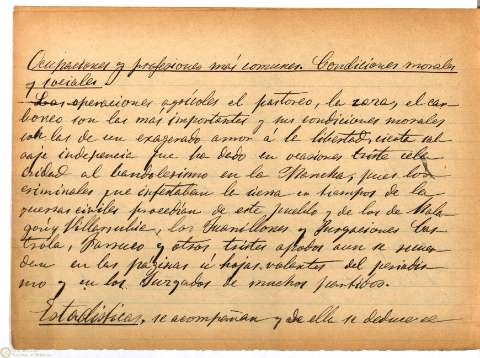 Ocupaciones y profesiones más comunes. Condiciones morales
y sociales.
Las operaciones agricoles el pastoreo, la zara, el car-
boneo son las más importantes y sus condiciones morales
son las de un exagerado amor á la libertad, cierta sal-
vaje indepencia que ha dado en ocasiones triste cele-
bridad al bandolerismo en la Mancha, pues los
criminales que infestaban la sierra en tiempos de la
guerras civiles procedian de este pueblo y de los de Mala-
gón y Villarrubia, los Juanillones y Purgaciones Cas-
trola, Parruco y otros tristes apodos aun se recuer-
den en las páginas ú hojas, valientes del periodis-
mo y en los Juzgados de muchos partidos.
Estadisticas, se acompañan y de ella se deduce